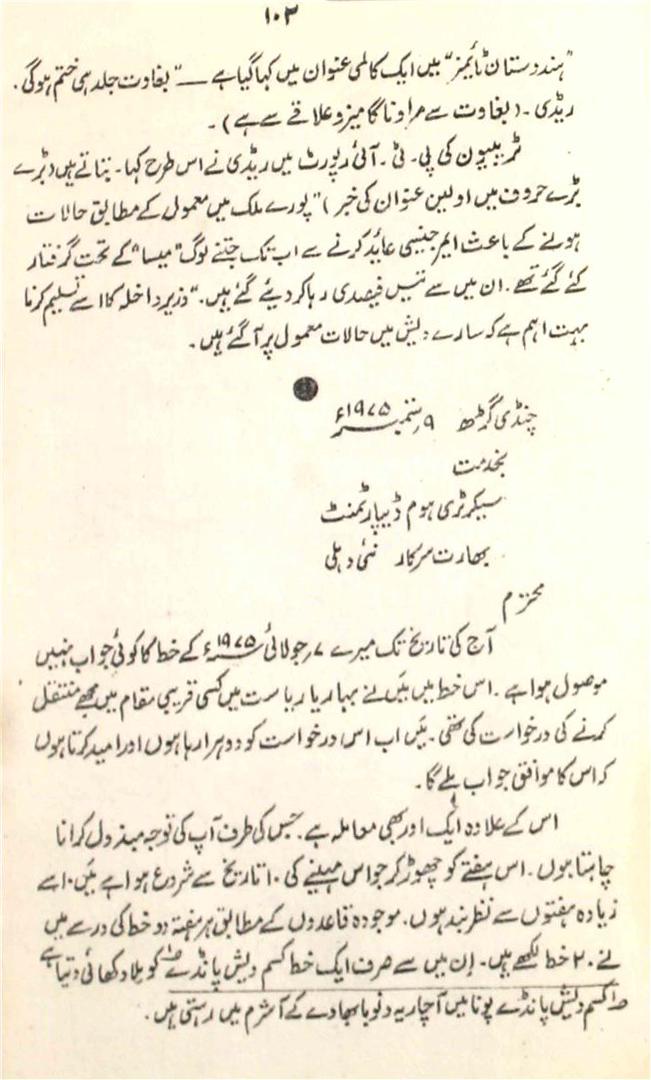 ۱۰۳
"ہندوستان ٹائمز" میں ایک کالمی عنوان میں کہا گیا ہے ــــ" بغاوت جلد ہی ختم ہوگی۔
ریڈی۔ (بغاوت سے مراد ناگا میزو علاقے سے ہے)۔
ٹریبیون کی پی۔ ٹی۔ آئی رپورٹ میں ریڈی نے اس طرح کہا۔ بتاتے ہیں (بڑے
بڑے حروف میں اولین عنوان کی خبر) "پورے ملک میں معمول کے مطابق حالات
ہونے کے باعث ایمرجینسی عاید کرنے سے اب تک جتنے لوگ "میسا" کے تحت گرفتار
کئے گئے تھے۔ ان میں سے تیس فیصدی رہا کر دیئے گئے ہیں۔" وزیر داخلہ کا اسے تسلیم کرنا
بہت اہم ہے کہ سارے دیش میں حالات معمول پر آگئے ہیں۔
چنڈی گڑھ ۹ر ستمبر ۱۹۷۵ء
بخدمت
سیکرٹری ہوم ڈیپارٹمنٹ
بھارت سرکار نئی دہلی
محترم
آج کی تاریخ تک میرے ۷ر جولائی ۱۹۷۵ء کے خط کا کوئی جواب نہیں
موصول ہوا ہے۔ اس خط میں میَں نے بہار یا ریاست میں کسی قریبی مقام میں مجھے منتقل
کرنے کی درخواست کی تھی۔ میَں اب اس درخواست کو دوہرا رہا ہوں اور امید کرتا ہوں
کہ اس کا موافق جواب ملے گا۔
اس کے علاوہ ایک اور بھی معاملہ ہے۔ جس کی طرف آپ کی توجہ مبذول کرانا
چاہتا ہوں۔ اس ہفتے کو چھوڑ کر جو اس مہینے کی ۱۰ تاریخ سے شروع ہوا ہے میَں ۱۰ سے
زیادہ ہفتوں سے نظر بند ہوں۔ موجودہ قاعدوں کے مطابق ہر ہفتہ دو خط کی در سے میں
نے ۲۰ خط لکھے ہیں۔ اِن میں سے صرف ایک خط کسم دیش پانڈے کو ملا دکھائی دیتا ہے
کسم دیش پانڈے پونا میں آچاریہ ونوبا بھاوے کے آشرم میں رہتی ہیں۔